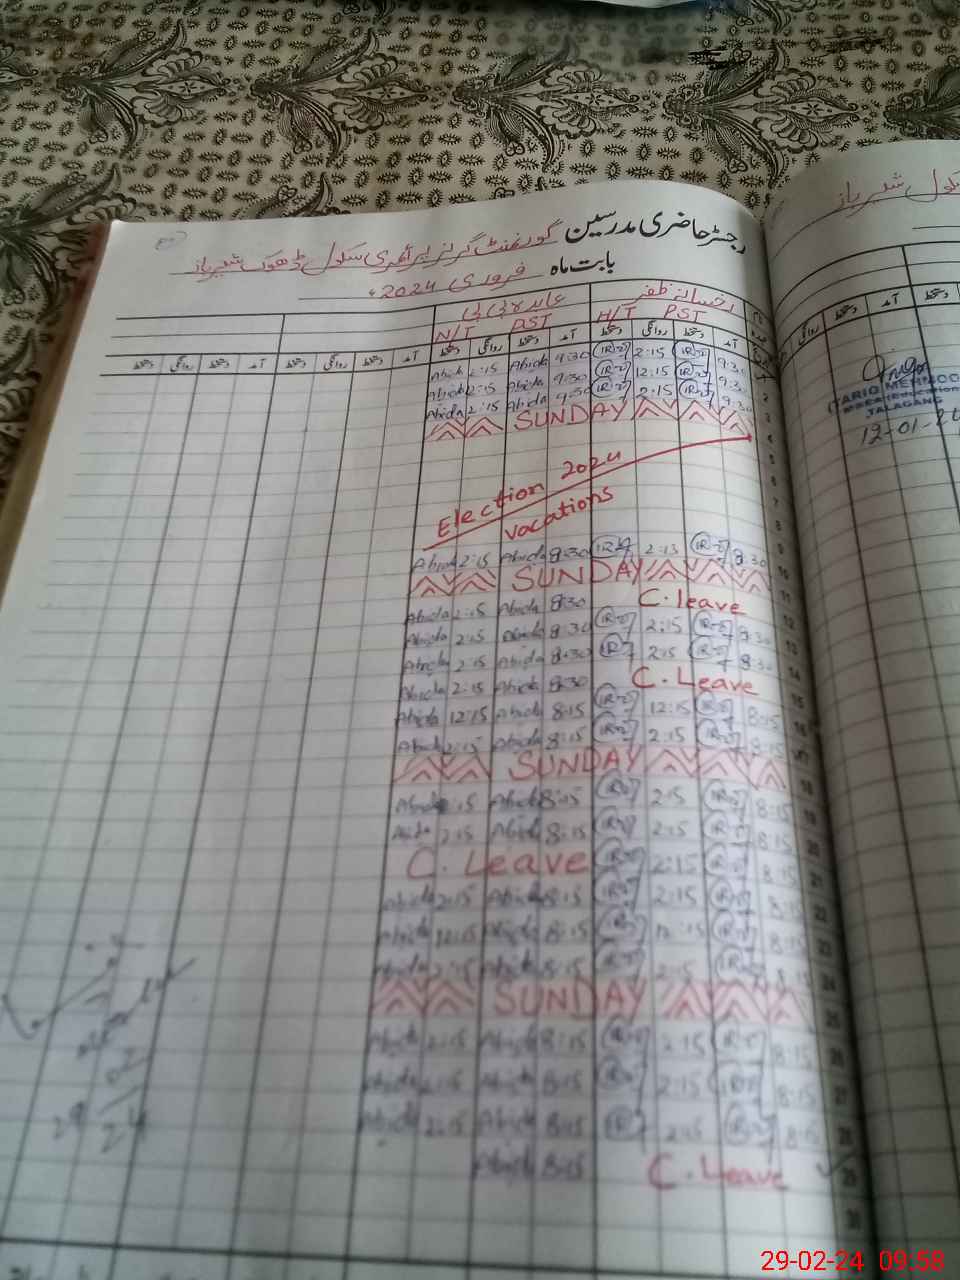 رجسٹر حاضری مدرسین گورنمنٹ گرلز پرائمری سکول ڈھوک شہباز
بابت ماہ فروری 2024ء
رخسانہ ظفر عابدہ بی بی
N/T PST H/T PST
دستخط روانگی دستخط آمد دستخط روانگی دستخط آمد دستخط روانگی دستخط آمد دستخط روانگی دستخط
Abida 2:15 Abida 9:30 2:15 9:30
Abida 2:15 Abida 9:30 12:15 9:30 2
Abida 2:15 Abida 9:30 2:15 9:30 3
SUNDAY 4
5
6
Election 2024 7
vacations 8
9
Abida 2:15 Abida 8:30 2:15 8:30 10
SUNDAY 11
Abida 2:15 Abida 8:30 C. leave 12
Abida 2:15 Abida 8:30 2:15 8:30 13
Abida 2:15 Abida 8:30 2:15 8:30 14
Abida 2:15 Abida 8:30 C. Leave 15
Abida 12:15 Abida 8:15 12:15 8:15 16
Abida 2:15 Abida 8:15 2:15 8:15 17
SUNDAY 18
Abida 2:15 Abida 8:15 2:15 8:15 19
Abida 2:15 Abida 8:15 2:15 8:15 20
C. Leave 2:15 8:15 21
Abida 2:15 Abida 8:15 2:15 8:15 22
Abida 12:15 Abida 8:15 12:15 8:15 23
Abida 2:15 Abida 8:15 2:15 8:15 24
SUNDAY 25
Abida 2:15 Abida 8:15 2:15 8:15 26
Abida 2:15 Abida 8:15 2:15 8:15 27
Abida 2:15 Abida 8:15 2:15 8:15 28
Abida 8:15 C. Leave 29
30
29
02
24
سکول شہباز
روانگی آمد دستخط
TARIQ MEHMOOD
TALAGANG
12-01-24
29-02-24 09:58